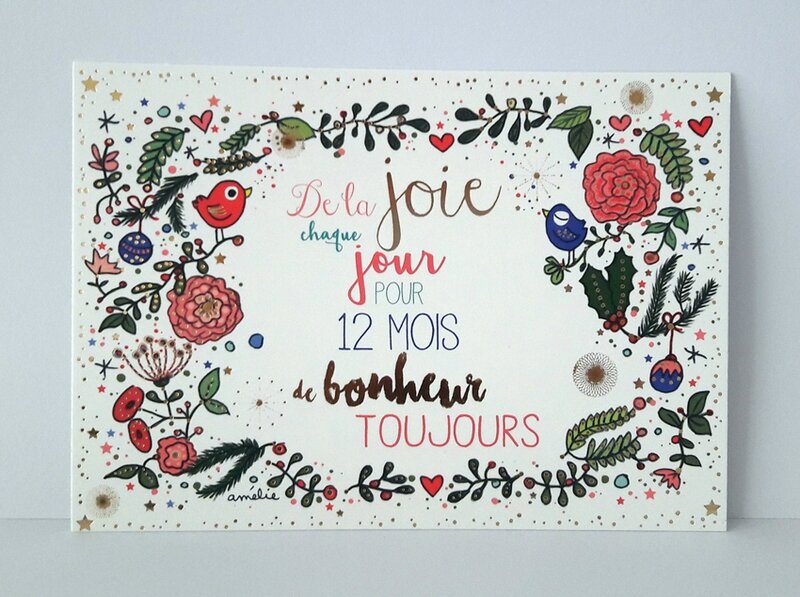 De la joie
chaque
jour
POUR
12 MOIS
de bonheur
TOUJOURS
amélie